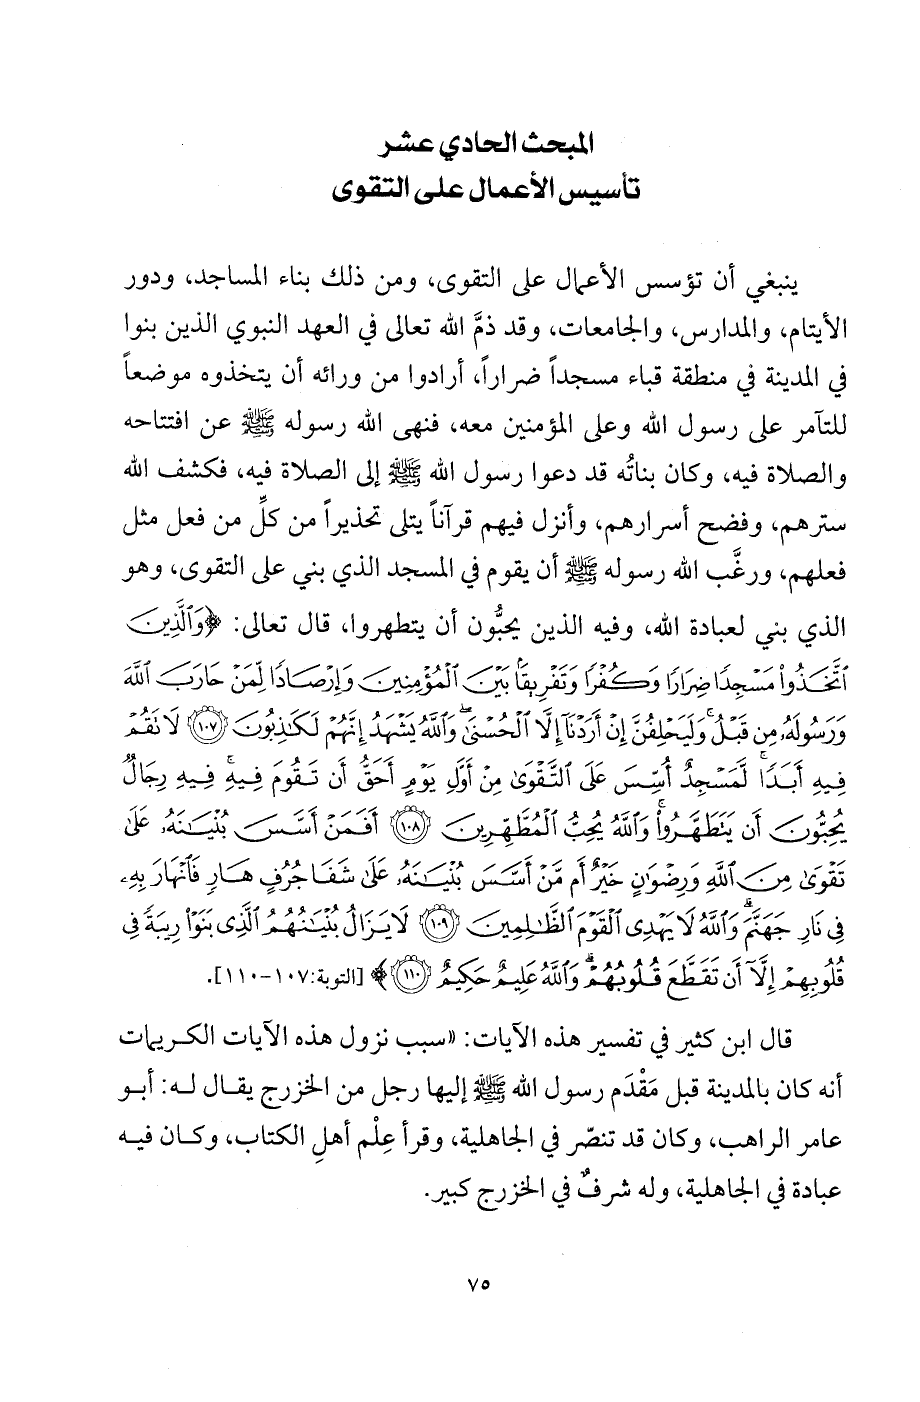 المبحث الحادي عشر
تأسيس الأعمال على التقوى
ينبغي أن تؤسس الأعمال على التقوى، ومن ذلك بناء المساجد، ودور
الأيتام، والمدارس، والجامعات، وقد ذمَّ الله تعالى في العهد النبوي الذين بنوا
في المدينة في منطقة قباء مسجداً ضراراً، أرادوا من ورائه أن يتخذوه موضعاً
للتآمر على رسول الله وعلى المؤمنين معه، فنهى الله رسوله ﷺ عن افتتاحه
والصلاة فيه، وكان بناتُه قد دعوا رسول الله ﷺ إلى الصلاة فيه، فكشف الله
سترهم، وفضح أسرارهم، وأنزل فيهم قرآناً يتلى تحذيراً من كلِّ من فعل مثل
فعلهم، ورغَّب الله رسوله ﷺ أن يقوم في المسجد الذي بني على التقوى، وهو
الذي بني لعبادة الله، وفيه الذين يحبُّون أن يتطهروا، قال تعالى: ﴿وَٱلَّذِينَ
ٱتَّخَذُواْ مَسْجِدًا ضِرَارًا وَكُفْرًا وَتَفْرِيقًۢا بَيْنَ ٱلْمُؤْمِنِينَ وَإِرْصَادًا لِّمَنْ حَارَبَ ٱللَّهَ
وَرَسُولَهُۥ مِن قَبْلُ ۚ وَلَيَحْلِفُنَّ إِنْ أَرَدْنَآ إِلَّا ٱلْحُسْنَىٰ ۖ وَٱللَّهُ يَشْهَدُ إِنَّهُمْ لَكَـٰذِبُونَ ۝١٠٧ لَا تَقُمْ
فِيهِ أَبَدًا ۚ لَّمَسْجِدٌ أُسِّسَ عَلَى ٱلتَّقْوَىٰ مِنْ أَوَّلِ يَوْمٍ أَحَقُّ أَن تَقُومَ فِيهِ ۚ فِيهِ رِجَالٌ
يُحِبُّونَ أَن يَتَطَهَّرُواْ ۚ وَٱللَّهُ يُحِبُّ ٱلْمُطَّهِّرِينَ ۝١٠٨ أَفَمَنْ أَسَّسَ بُنْيَـٰنَهُۥ عَلَىٰ
تَقْوَىٰ مِنَ ٱللَّهِ وَرِضْوَٰنٍ خَيْرٌ أَم مَّنْ أَسَّسَ بُنْيَـٰنَهُۥ عَلَىٰ شَفَا جُرُفٍ هَارٍ فَٱنْهَارَ بِهِۦ
فِى نَارِ جَهَنَّمَ ۗ وَٱللَّهُ لَا يَهْدِى ٱلْقَوْمَ ٱلظَّـٰلِمِينَ ۝١٠٩ لَا يَزَالُ بُنْيَـٰنُهُمُ ٱلَّذِى بَنَوْاْ رِيبَةً فِى
قُلُوبِهِمْ إِلَّآ أَن تَقَطَّعَ قُلُوبُهُمْ ۗ وَٱللَّهُ عَلِيمٌ حَكِيمٌ ۝١١٠﴾ [التوبة:١٠٧-١١٠].
قال ابن كثير في تفسير هذه الآيات: «سبب نزول هذه الآيات الكريمات
أنه كان بالمدينة قبل مَقْدَم رسول الله ﷺ إليها رجل من الخزرج يقال له: أبو
عامر الراهب، وكان قد تنصّر في الجاهلية، وقرأ عِلْم أهلِ الكتاب، وكان فيه
عبادة في الجاهلية، وله شرفٌ في الخزرج كبير.
٧٥